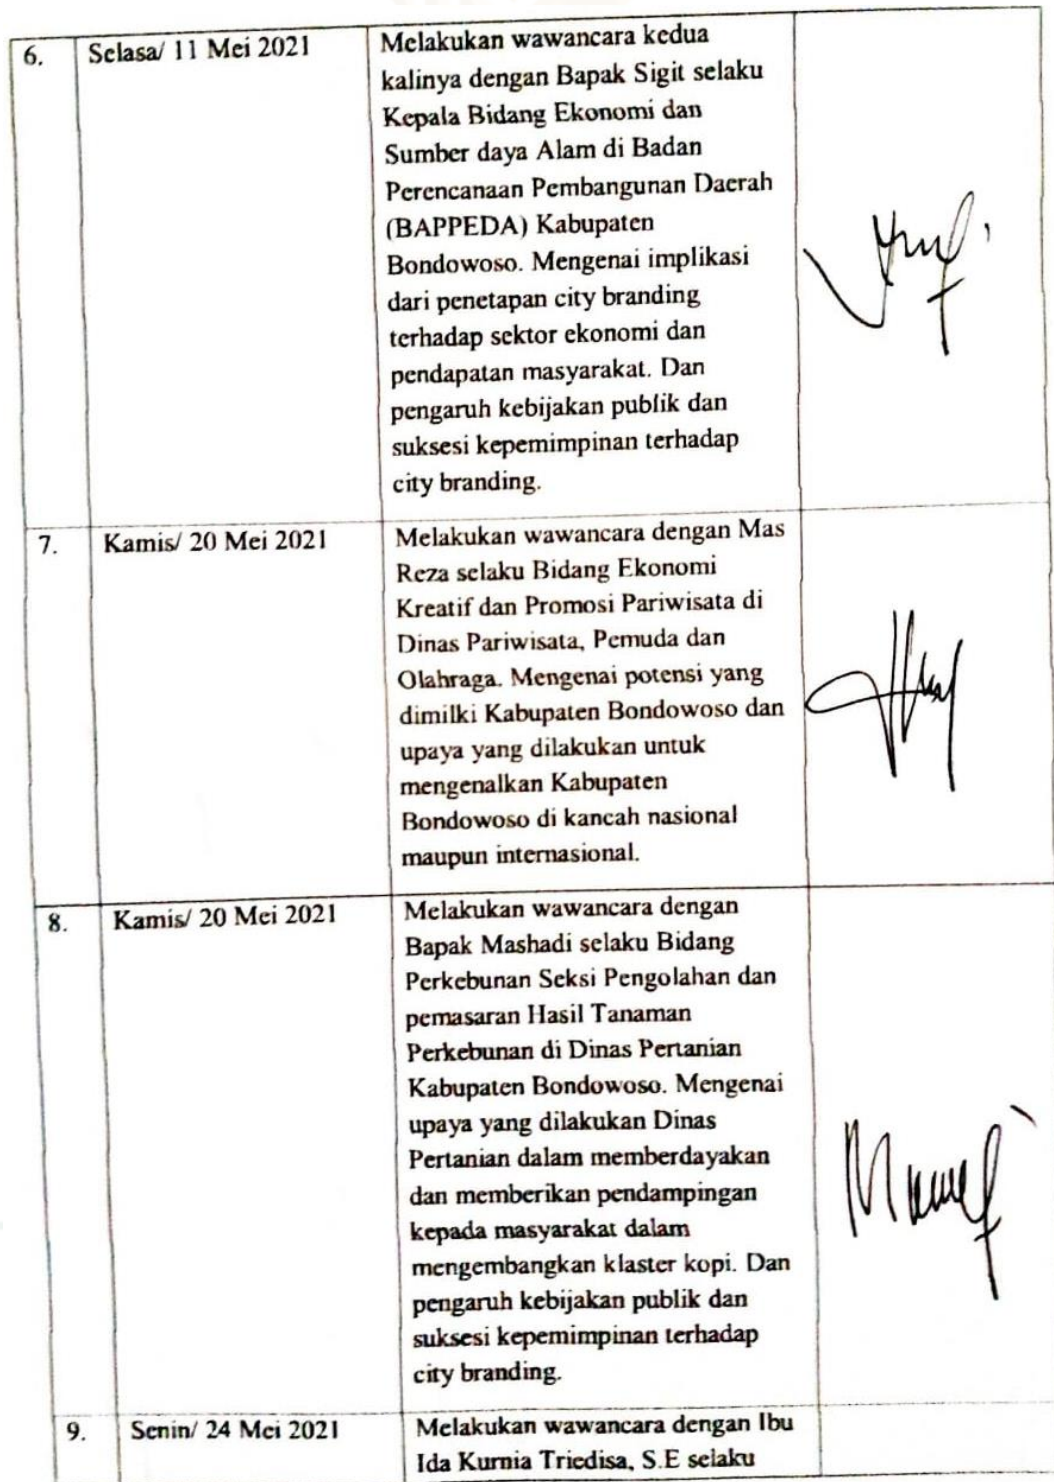 6. Selasa/ 11 Mei 2021 Melakukan wawancara kedua
kalinya dengan Bapak Sigit selaku
Kepala Bidang Ekonomi dan
Sumber daya Alam di Badan
Perencanaan Pembangunan Daerah
(BAPPEDA) Kabupaten
Bondowoso. Mengenai implikasi
dari penetapan city branding
terhadap sektor ekonomi dan
pendapatan masyarakat. Dan
pengaruh kebijakan publik dan
suksesi kepemimpinan terhadap
city branding.
7. Kamis/ 20 Mei 2021 Melakukan wawancara dengan Mas
Reza selaku Bidang Ekonomi
Kreatif dan Promosi Pariwisata di
Dinas Pariwisata, Pemuda dan
Olahraga. Mengenai potensi yang
dimilki Kabupaten Bondowoso dan
upaya yang dilakukan untuk
mengenalkan Kabupaten
Bondowoso di kancah nasional
maupun internasional.
8. Kamis/ 20 Mei 2021 Melakukan wawancara dengan
Bapak Mashadi selaku Bidang
Perkebunan Seksi Pengolahan dan
pemasaran Hasil Tanaman
Perkebunan di Dinas Pertanian
Kabupaten Bondowoso. Mengenai
upaya yang dilakukan Dinas
Pertanian dalam memberdayakan
dan memberikan pendampingan
kepada masyarakat dalam
mengembangkan klaster kopi. Dan
pengaruh kebijakan publik dan
suksesi kepemimpinan terhadap
city branding.
9. Senin/ 24 Mei 2021 Melakukan wawancara dengan Ibu
Ida Kurnia Triedisa, S.E selaku